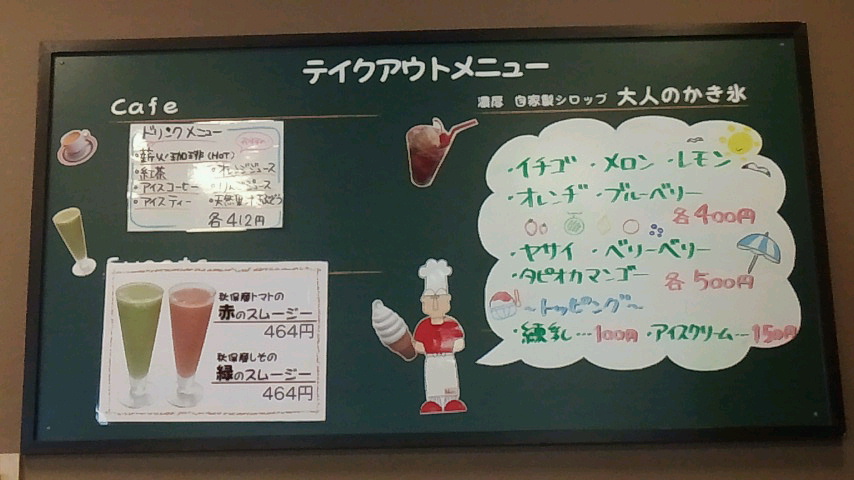 テイクアウトメニュー
Cafe
ドリンクメニュー
・薪火珈琲(HOT)
・紅茶
・オレンジジュース
・アイスコーヒー
・りんごジュース
・アイスティー
・天然果汁ぶどう
各412円
Sweets
秋保産トマトの
赤のスムージー
464円
秋保産しその
緑のスムージー
464円
濃厚 自家製シロップ 大人のかき氷
・イチゴ ・メロン ・レモン
・オレンヂ ・ブルーベリー
各400円
・ヤサイ ・ベリーベリー
・タピオカマンゴー 各500円
～トッピング～
・練乳…100円 ・アイスクリーム…150円